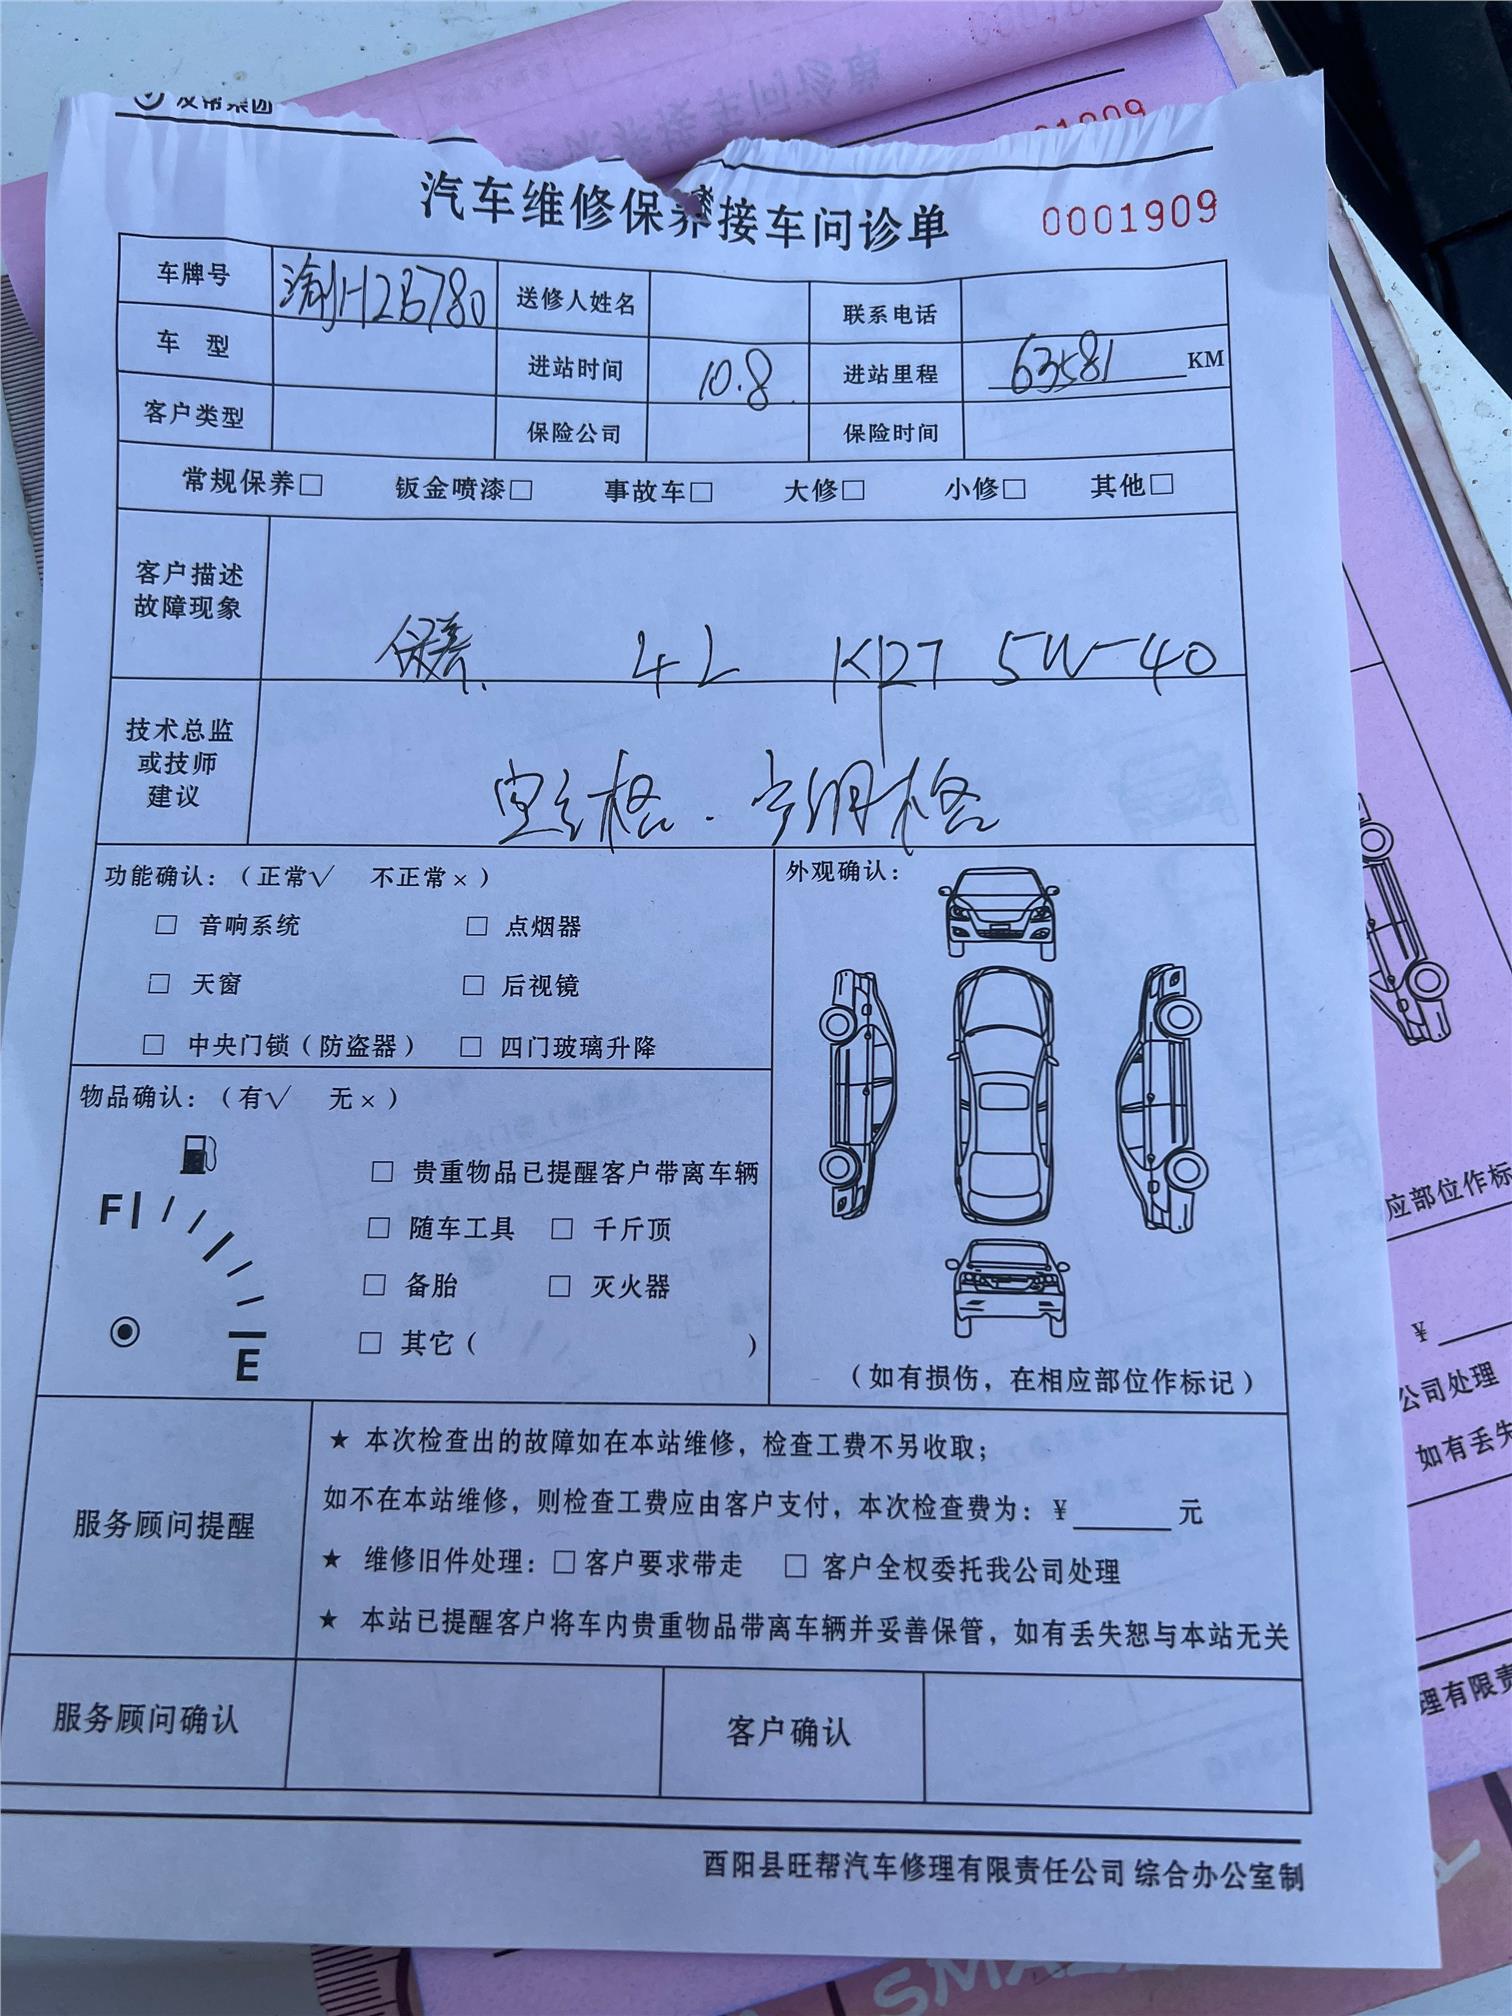 集团
汽车维修保养接车问诊单 0001909
车牌号 渝H2B780 送修人姓名 联系电话
车 型 进站时间 10.8 进站里程 63581 KM
客户类型 保险公司 保险时间
常规保养□ 钣金喷漆□ 事故车□ 大修□ 小修□ 其他□
客户描述
故障现象
保养 4L 5W-40
技术总监
或技师
建议
空气格.空调格
功能确认:(正常√ 不正常×)
□ 音响系统 □ 点烟器
□ 天窗 □ 后视镜
□ 中央门锁(防盗器) □ 四门玻璃升降
外观确认:
(如有损伤,在相应部位作标记)
物品确认:(有√ 无×)
F
E
□ 贵重物品已提醒客户带离车辆
□ 随车工具 □ 千斤顶
□ 备胎 □ 灭火器
□ 其它( )
服务顾问提醒
★ 本次检查出的故障如在本站维修,检查工费不另收取;
如不在本站维修,则检查工费应由客户支付,本次检查费为:¥______元
★ 维修旧件处理:□客户要求带走 □ 客户全权委托我公司处理
★ 本站已提醒客户将车内贵重物品带离车辆并妥善保管,如有丢失恕与本站无关
服务顾问确认 客户确认
酉阳县旺帮汽车修理有限责任公司 综合办公室制
应部位作标
¥
公司处理
如有丢失
理有限责